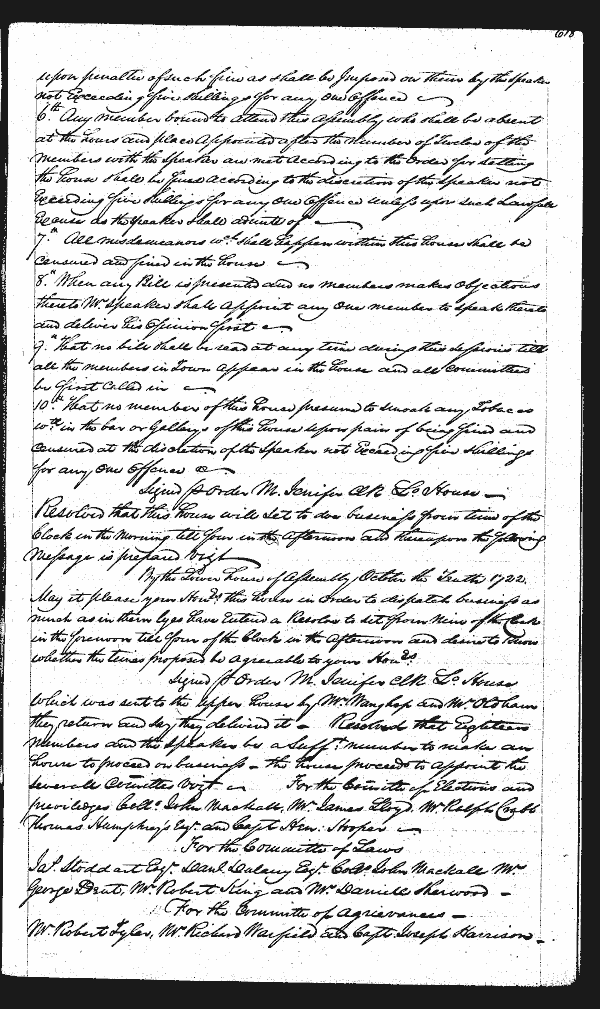 618
upon penaltie of such fine as shall be Imposed on them by the Speaker
not Exceeding five shillings for any one offence
6.th Any member bound to attend this Assembly who shall be absent
at the hours and place Appointed after the number of Twelve of the
members with the Speaker are met According to the Order for setting
the house shall be fined according to the discretion of the Speaker not
Exceeding five shillings for any one Offence unless upon such Lawfull
Excuse as the Speaker shall admitt of
7.th All misdemeanors wch shall happen within this house shall be
censured and fined in the house
8.th When any Bill is presented and no members makes objections
thereto Mr Speaker shall Appoint any One member to speak thereto
and deliver his Opinion first
9.th That no bill shall be read at any time during this sessions till
all the members in Town appear in the house and all committees
be first called in
10.th That no member of this house presume to smoak any Tobacco
wth in the bar or Gallerys of this house upon pain of being fined and
censured at the discretion of the Speaker not Exceeding five shillings
for any one offence
Signd p Order M. Jenifer Clk Lo House
Resolved that this house will set to doe business from nine of the
Clock in the morning till four in the Afternoon and thereupon the following
message is prepared Vizt
By the Lower house of Assembly October the Tenth 1722.
May it please your Honrs this house in order to dispatch business as
much as in them lyes have Enterd a Resolve to set from Nine of the Clock
in the forenoon till four of the Clock in the Afternoon and desire to know
whether the times proposed be agreable to your Honrs
Signd p Order M. Jenifer Clk Lo House
Which was sent to the upper house by Mr and Mr Oldham
they return and say they delivered it Resolved that Eighteen
members and the Speaker be a Sufft number to make an
house to proceed on business - the house proceeds to appoint the
severall Comittes Vizt For the Comitte of Elections and
priviledges Collo John Mackall, Mr James Lloyd. Mr Ralph Crabb
Thomas Humphreys Esqr. and Capt Hen. Hooper
For the Committe of Laws
Jas. Stoddart Esqr. Danl. Dulany Esqr. Collo John Mackall Mr
George Dent, Mr Robert King and Mr Daniell Sherwood -
For the Committe of agrievances -
Mr Robert Tyler, Mr Richard Warfield and Capt. Joseph Harrison -